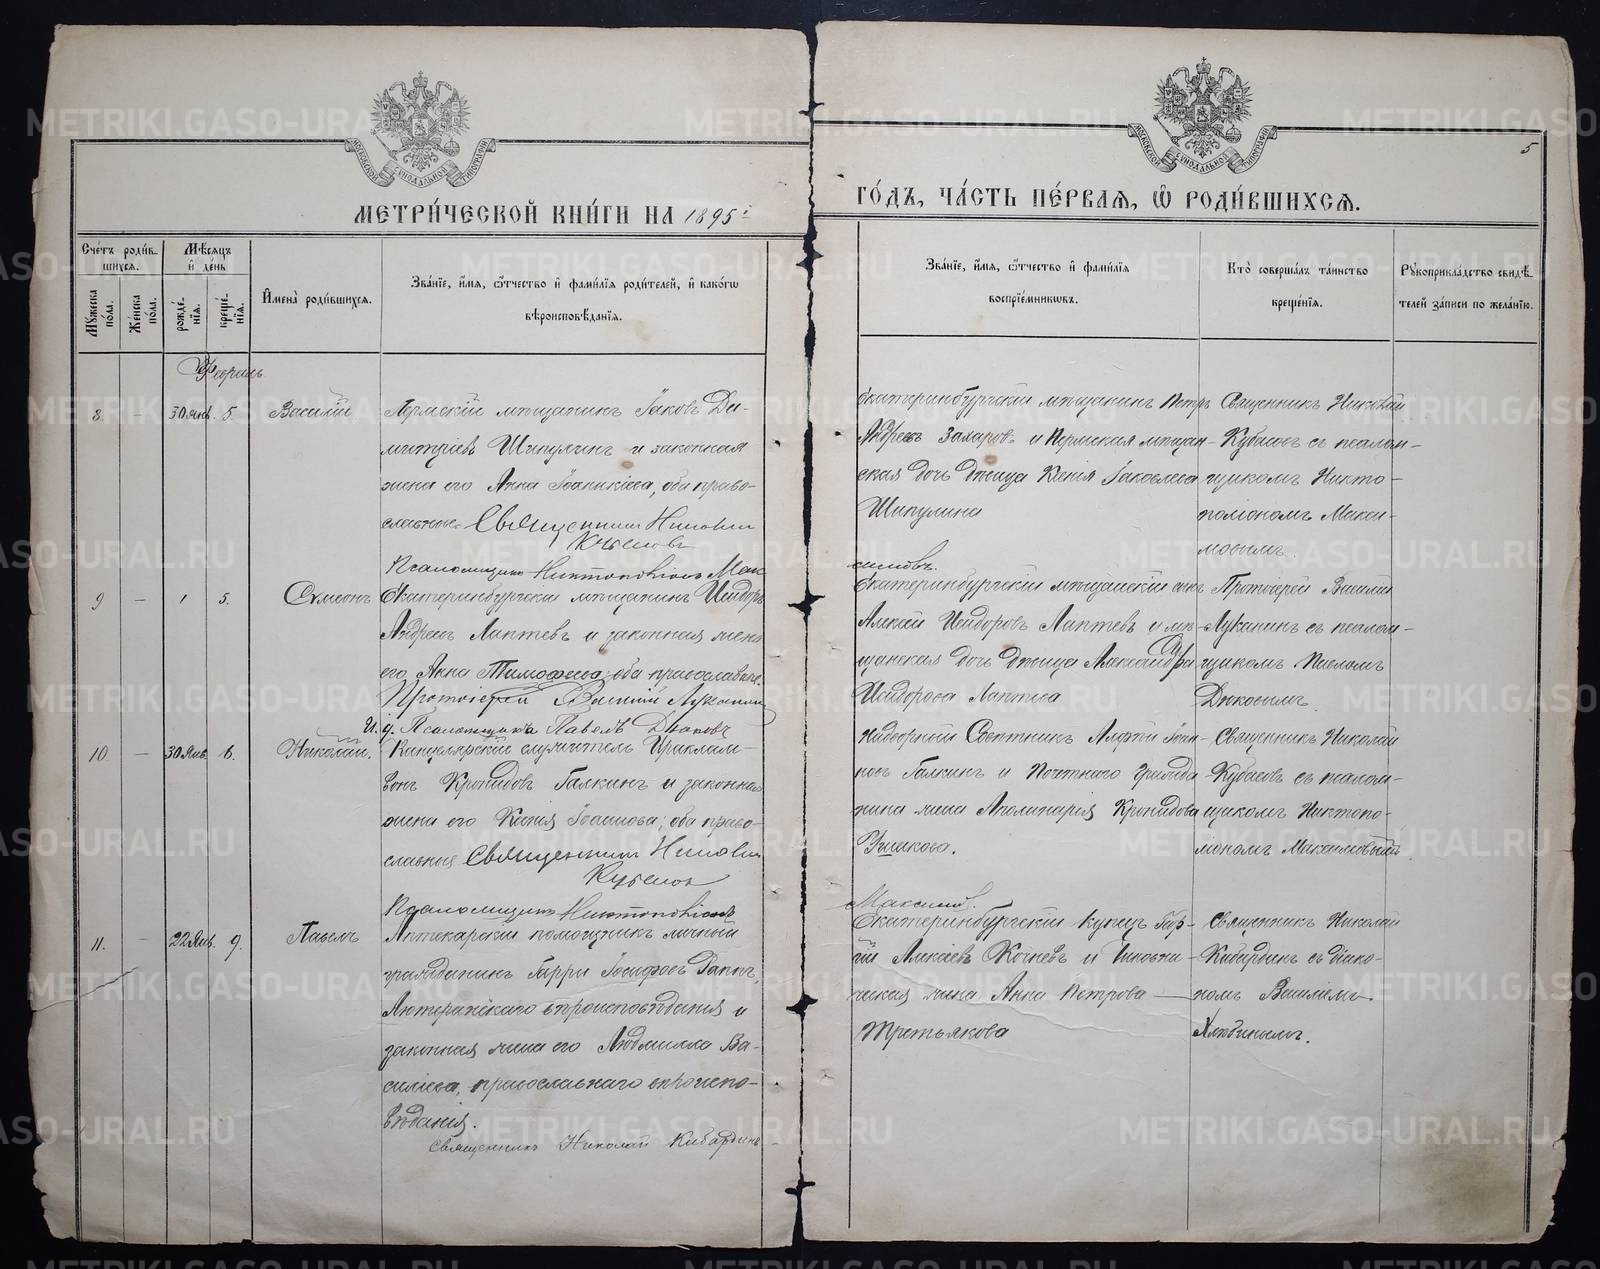 МОСКОВСКОЙ СѴНОДАЛЬНОЙ ТИПОГРАФІИ
МОСКОВСКОЙ СѴНОДАЛЬНОЙ ТИПОГРАФІИ
5
МЕТРИ́ЧЕСКОЙ КНИ́ГИ НА 1895
ГО́ДЪ, ЧА́СТЬ ПЕ́РВАѦ, Ѽ РОДИ́ВШИХСѦ.
Сче́тъ роди́вшихсѧ.
Мꙋ́жеска по́ла.
Же́нска по́ла.
Мѣ́сѧцъ и҆ де́нь
рожде́нїѧ.
креще́нїѧ.
И҆мена̀ роди́вшихсѧ.
Зва́нїе, и҆́мѧ, ѻ҆́тчество и҆ фами́лїѧ роди́телей, и҆ како́гѡ
вѣроисповѣ́данїѧ.
Зва́нїе, и҆́мѧ, ѻ҆́тчество и҆ фами́лїѧ
воспрїе́мниковъ.
Кто̀ соверша́лъ та́инство
креще́нїѧ.
Рꙋкоприкла́дство свидѣ́-
телей за́писи по жела́нїю.
Февраль
8. - 30 янв. 5. Василій
Пермскій мѣщанинъ Іаковъ Ди-
митріевъ Шипулинъ и законная
жена его Анна Іоанникіева, оба право-
славные. Священникъ Николай
Кубасовъ
Псаломщикъ Никтополіонъ Мак
симовъ.
Екатеринбургскій мѣщанинъ Петръ
Андреевъ Захаровъ и Пермская мѣщан-
ская дочь дѣвица Ксенія Іаковлева
Шипулина
Священникъ Николай
Кубасовъ съ псалом-
щикомъ Никто-
поліономъ Макси-
мовымъ.
9 - 1 5. Симеонъ
Екатеринбургскій мѣщанинъ Исидоръ
Андреевъ Лаптевъ и законная жена
его Анна Тимофеева, оба православные.
Протоіерей Василій Луканинъ
И. д. Псаломщика Павелъ Дюковъ
Екатеринбургскій мѣщанскій сынъ
Алексій Исидоровъ Лаптевъ и мѣ-
щанская дочь дѣвица Александра
Исидорова Лаптева
Протоіерей Василій
Луканинъ съ псалом-
щикомъ Павломъ
Дюковымъ.
10. - 30 Янв. 6. Николай.
Канцелярскій служитель Ираклам-
вонъ Кронидовъ Галкинъ и законная
жена его Ксенія Іоаннова; оба право-
славные Священникъ Николай
Кубасовъ
Псаломщикъ Никтополіонъ
Максимов.
Надворный Совѣтникъ Алексѣй Іоан-
новъ Галкинъ и Почетнаго Гражда-
нина жена Аполинарія Кронидова
Ушакова.
Священникъ Николай
Кубасовъ съ псалом-
щикомъ Никтопо-
ліономъ Максимовымъ
11. - 22 Янв. 9. Павелъ
Аптекарскій помощникъ личный
гражданинъ Гарри Іосифовъ Раппъ,
Лютеранскаго вѣроисповѣданія и
законная жена его Людмилла Ва-
сильева, православнаго вѣроиспо-
вѣданія.
Священникъ Николай Кибардинъ
Екатеринбургскій купецъ Геор-
гій Алексѣевъ Кочневъ и Чиновни-
ческая жена Анна Петрова
Третьякова
Священникъ Николай
Кибардинъ съ діако-
номъ Василіемъ
Хлюбинымъ.
METRIKI.GASO-URAL.RU